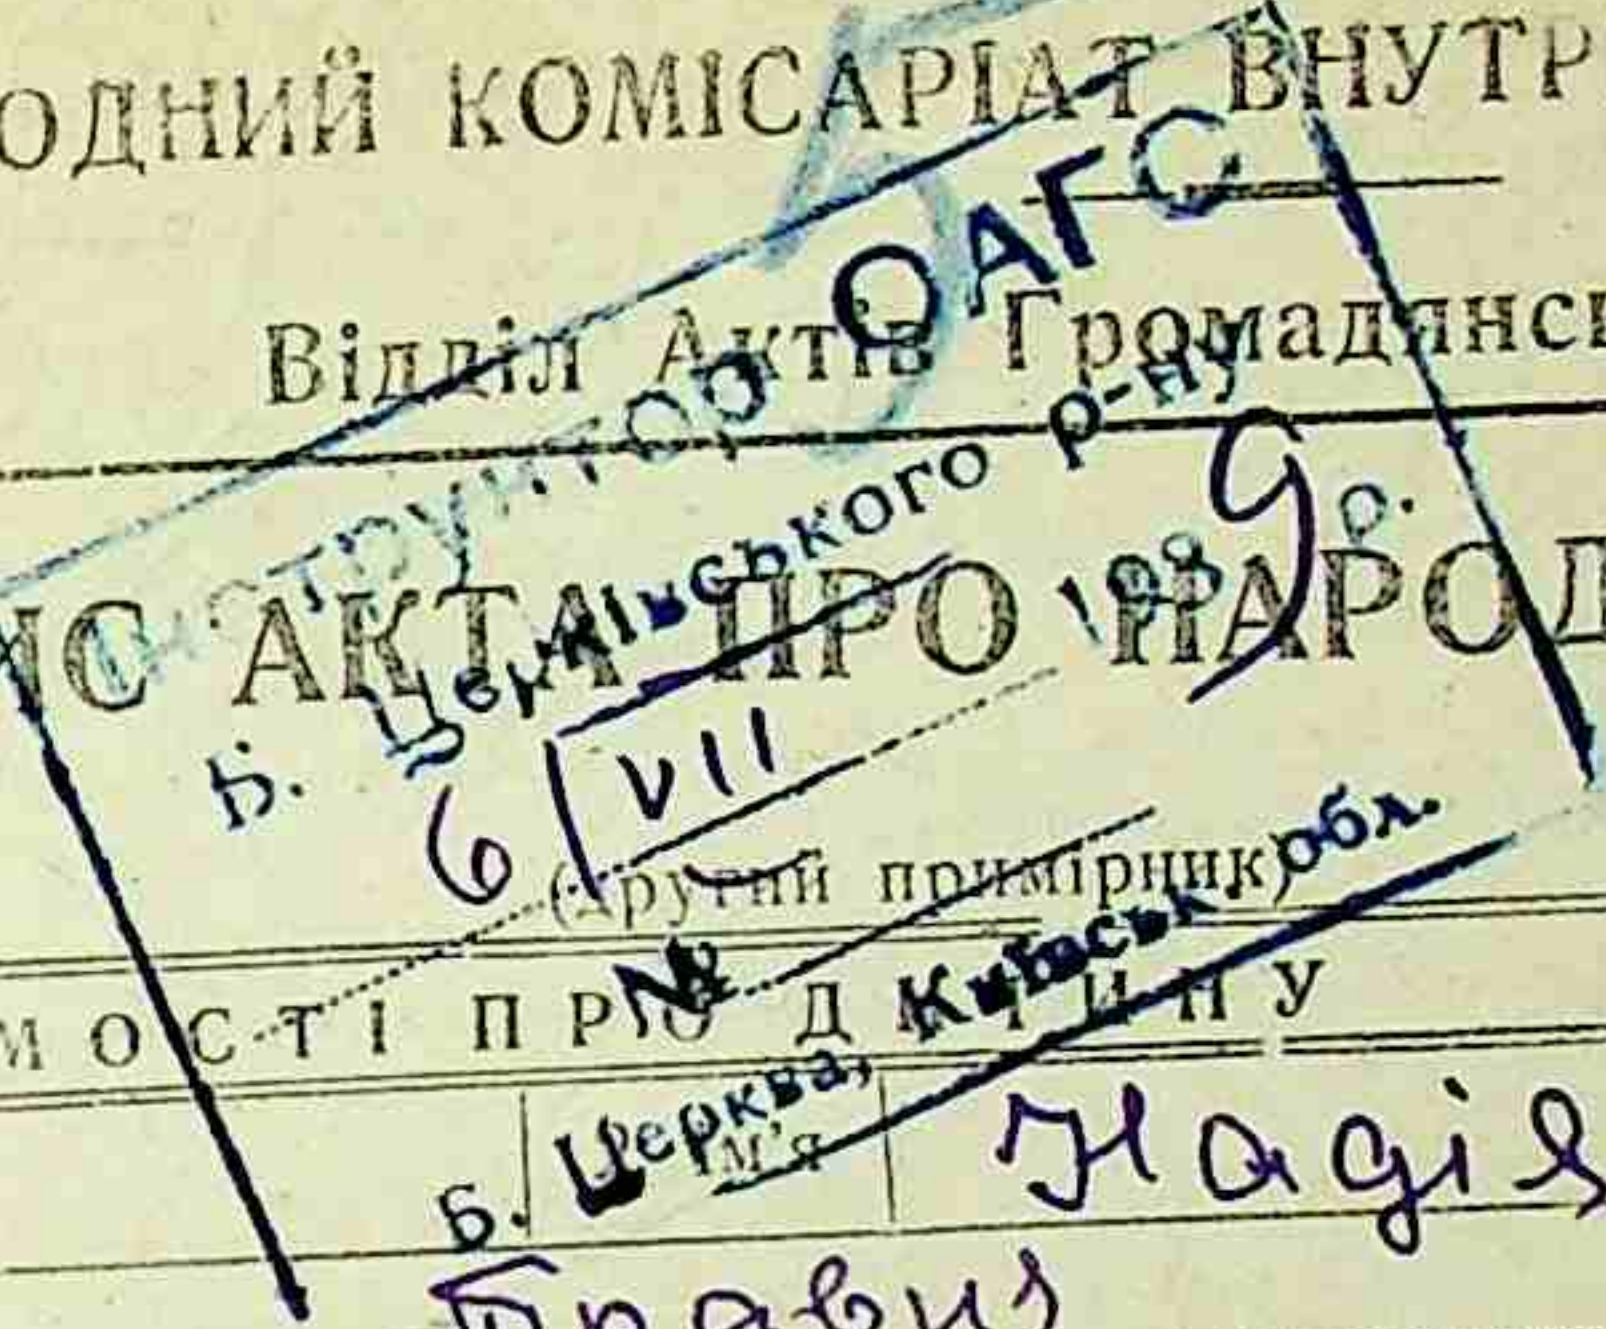 ОДНИЙ КОМІСАРІАТ ВНУТР
Відділ Актів Громадянс
ИС АКТА ПРО НАРОД
(другий примірник)
МОСТІ ПРО ДИТИНУ
ім'я Надія
травня
Інструктор ОАГС
Б. Церківського р-ну
6 VII 1939 р.
№
Б. Церква, Київськ. обл.